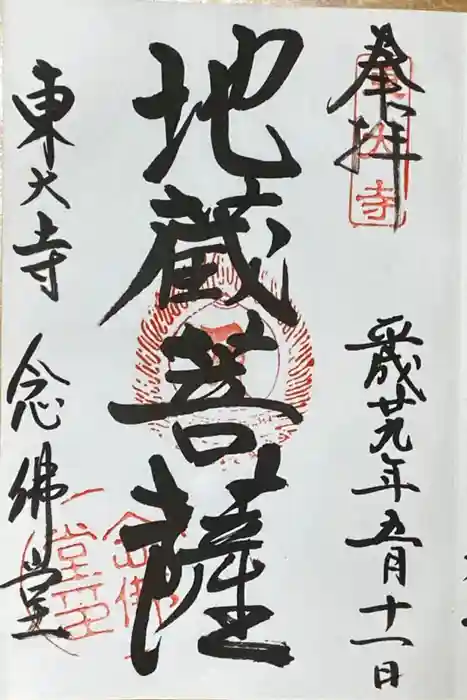 奉拝
平成廿九年五月十一日
地蔵菩薩
東大寺 念佛堂
東大寺
念佛堂印